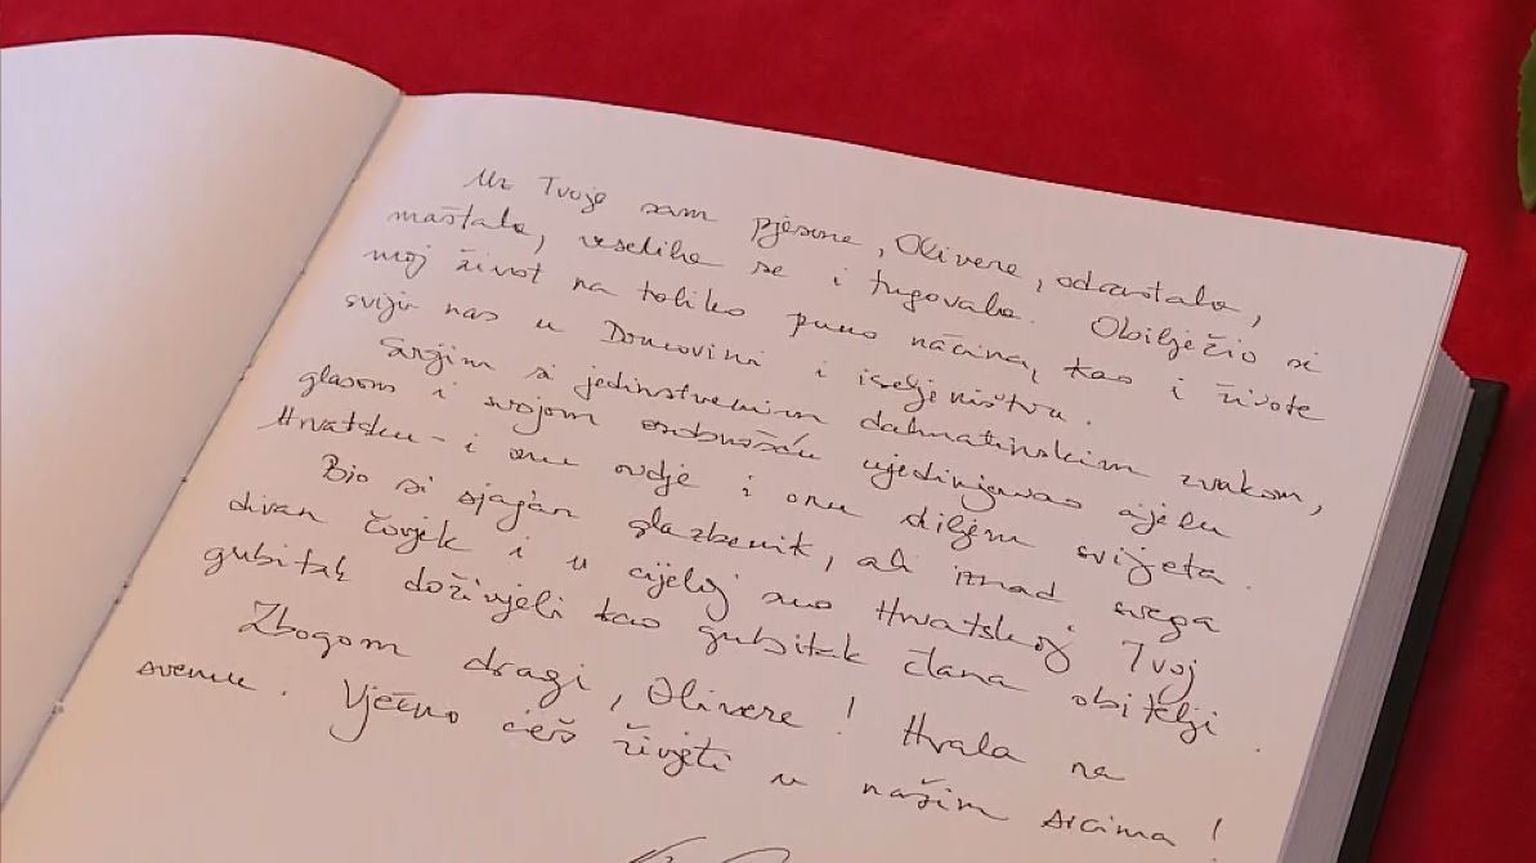 Uz Tvoje sam pjesme, Olivere, odrastala,
maštala, veselila se i tugovala. Obilježio si
moj život na toliko puno načina, kao i živote
sviju nas u Domovini i iseljeništvu.
Svojim si jedinstvenim dalmatinskim zvukom,
glasom i svojom osobnošću ujedinjavao cijelu
Hrvatsku - i onu ovdje i onu diljem svijeta.
Bio si sjajan glazbenik, ali iznad svega
divan čovjek i u cijeloj smo Hrvatskoj Tvoj
gubitak doživjeli kao gubitak člana obitelji.
Zbogom dragi, Olivere! Hvala na
svemu. Vječno ćeš živjeti u našim srcima!